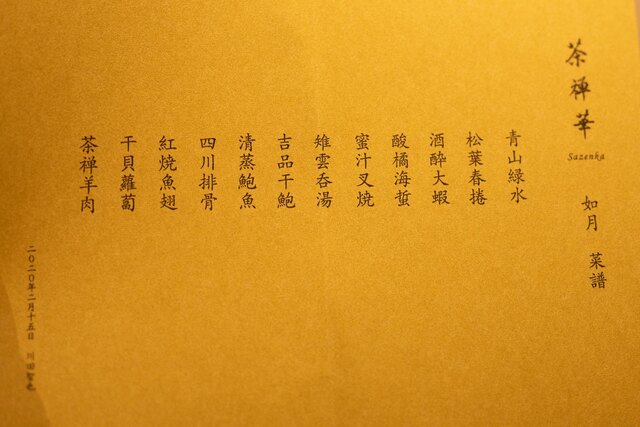 茶禅華
Sazenka
如月 菜譜
青山緑水
松葉春捲
酒酔大蝦
酸橘海蜇
蜜汁叉焼
雉雲呑湯
吉品干鮑
清蒸鮑魚
四川排骨
紅焼魚翅
干貝蘿蔔
茶禅羊肉
二〇二〇年二月十五日 川田智也